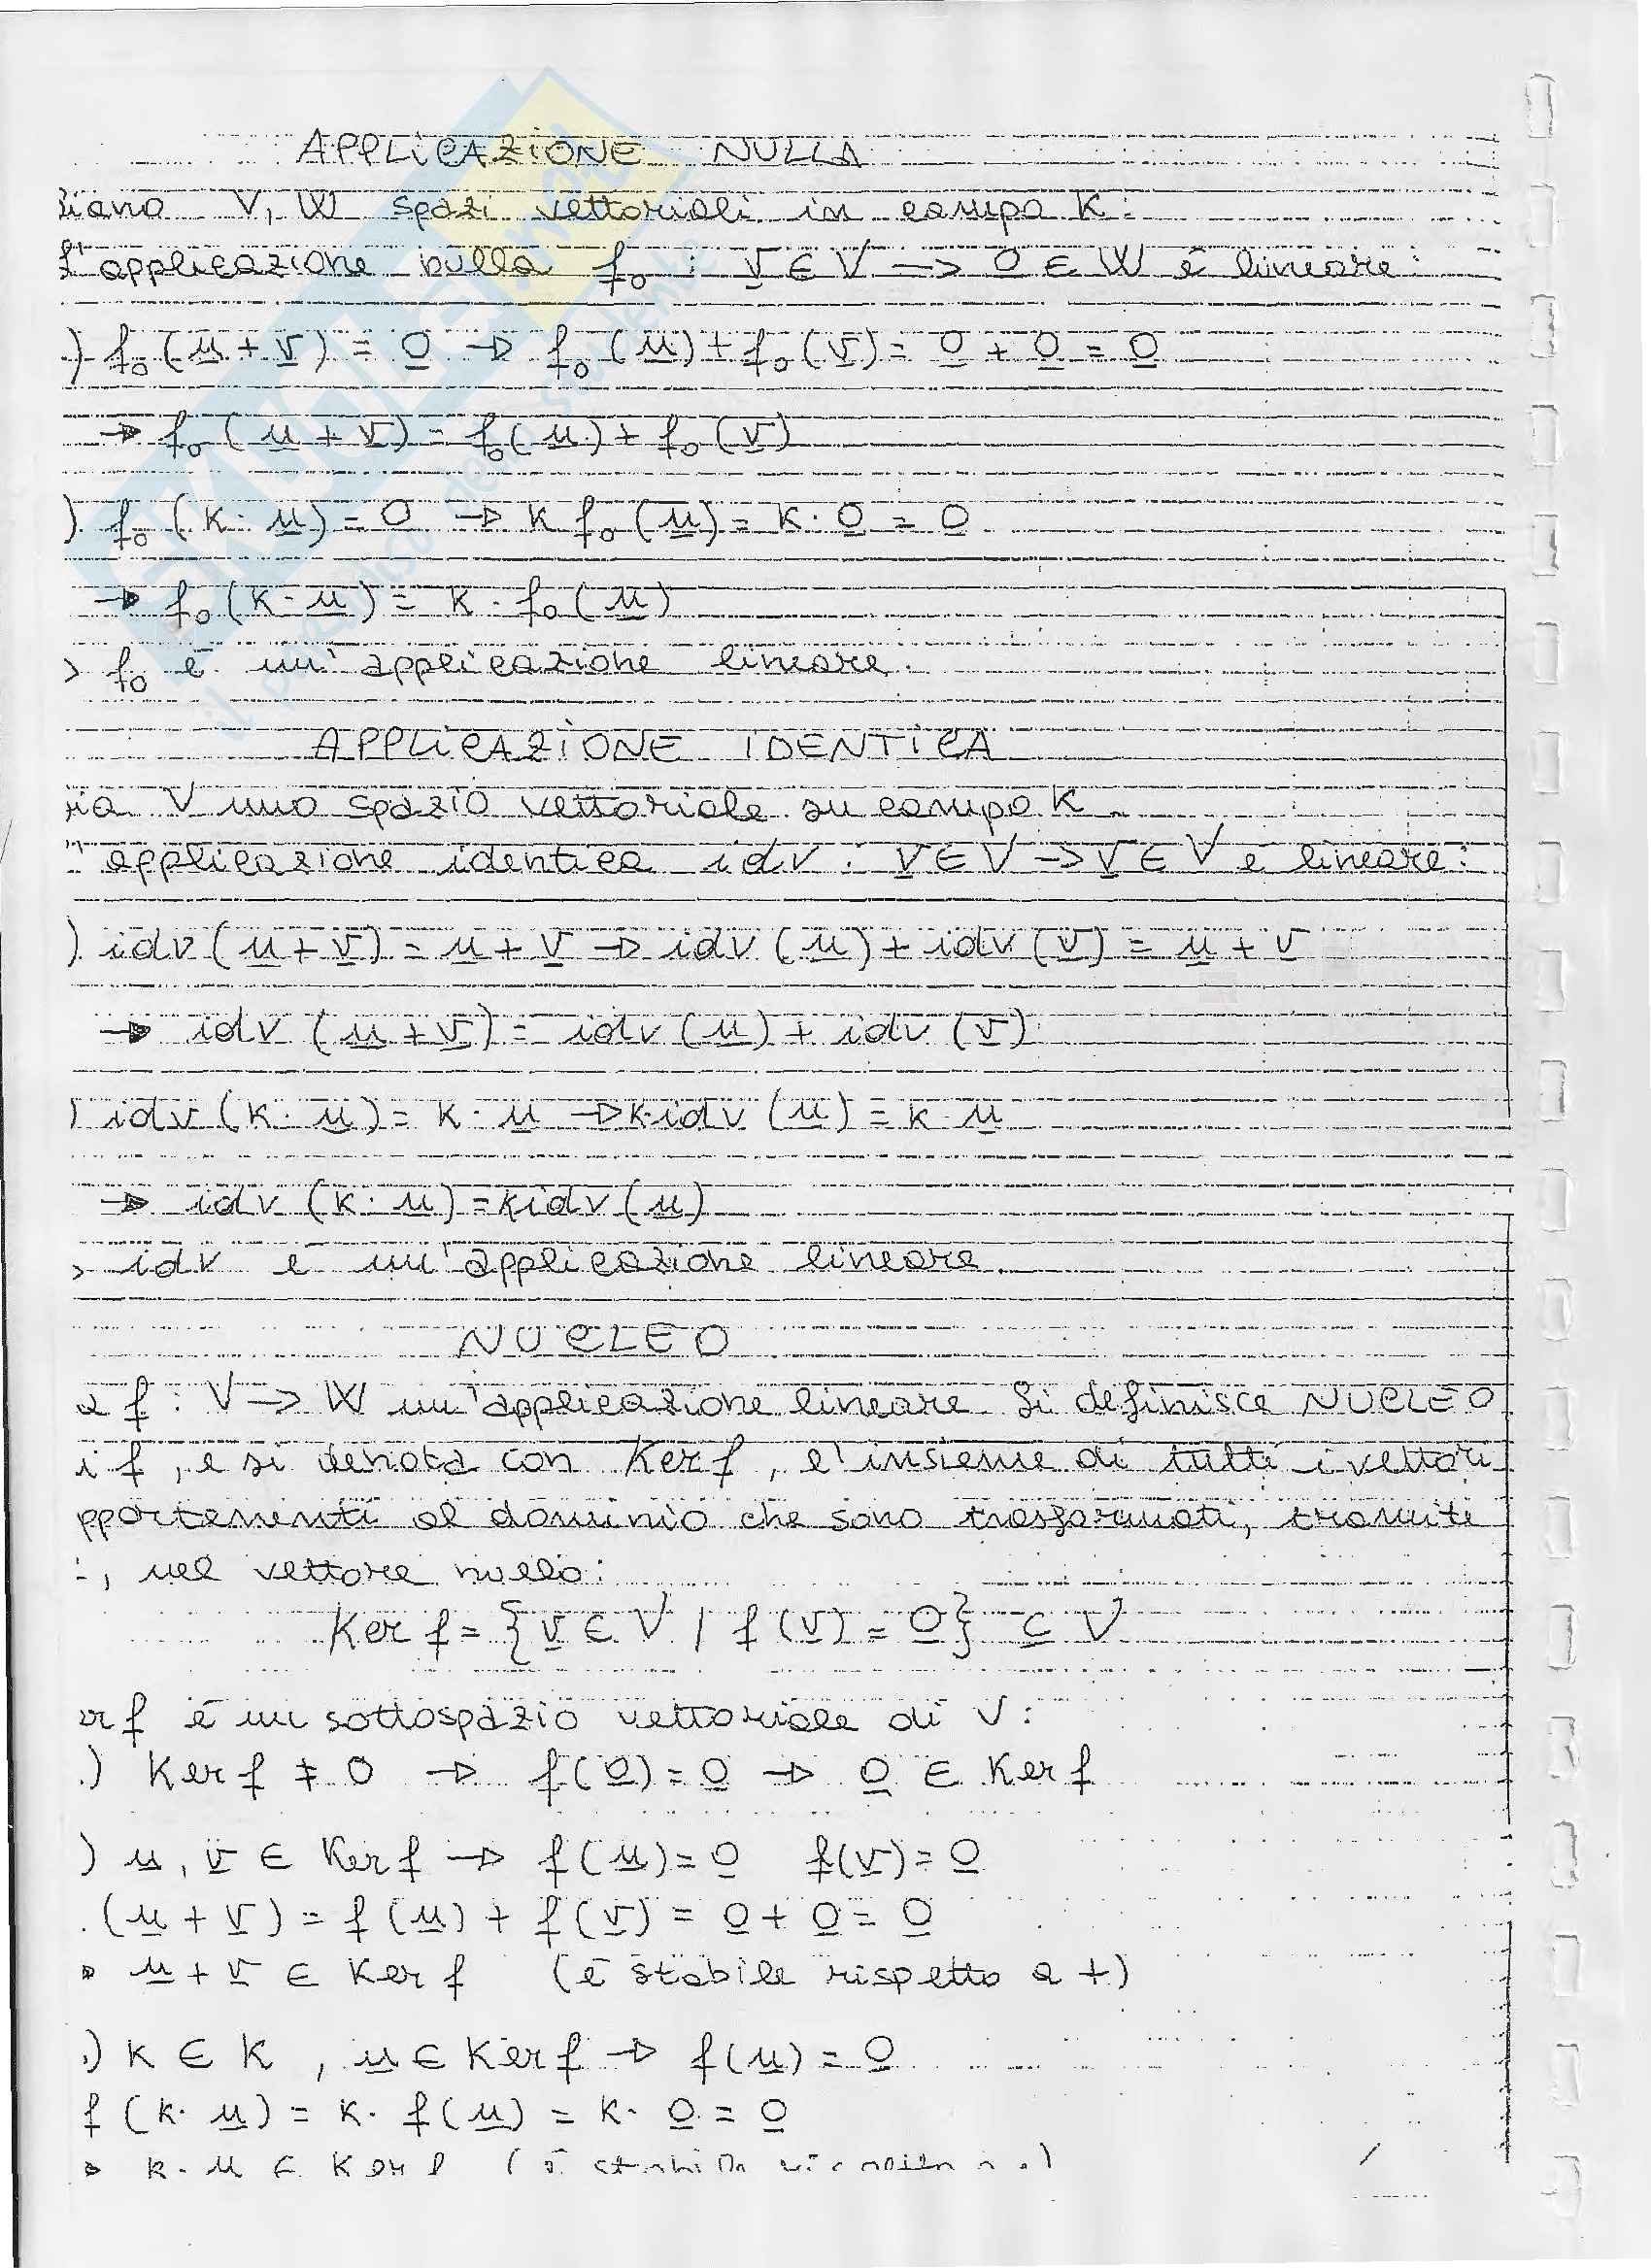 APPLICAZIONE NULLA
siano V, W spazi vettoriali in campo K:
l'applicazione nulla f₀ : v̲ ∈ V → 0̲ ∈ W è lineare:
) f₀(u̲ + v̲) = 0̲ → f₀(u̲) + f₀(v̲) = 0̲ + 0̲ = 0̲
→ f₀(u̲ + v̲) = f₀(u̲) + f₀(v̲)
) f₀(k · u̲) = 0 → k f₀(u̲) = k · 0̲ = 0̲
→ f₀(k · u̲) = k · f₀(u̲)
> f₀ è un'applicazione lineare.
APPLICAZIONE IDENTICA
ia V uno spazio vettoriale su campo K.
'applicazione identica idv : v̲ ∈ V → v̲ ∈ V è lineare:
) idv(u̲ + v̲) = u̲ + v̲ → idv(u̲) + idv(v̲) = u̲ + v̲
→ idv(u̲ + v̲) = idv(u̲) + idv(v̲)
) idv(k · u̲) = k · u̲ → k idv(u̲) = k · u̲
→ idv(k · u̲) = k idv(u̲)
> idv è un'applicazione lineare.
NUCLEO
a f : V → W un'applicazione lineare. Si definisce NUCLEO
i f, e si denota con Ker f, l'insieme di tutti i vettori
ppartenenti al dominio che sono trasformati, tramite
, nel vettore nullo:
Ker f = {v̲ ∈ V / f(v̲) = 0̲} ⊆ V
er f è un sottospazio vettoriale di V:
.) Ker f ≠ 0 → f(0̲) = 0̲ → 0̲ ∈ Ker f
) u̲, v̲ ∈ Ker f → f(u̲) = 0̲ f(v̲) = 0̲
(u̲ + v̲) = f(u̲) + f(v̲) = 0̲ + 0̲ = 0̲
▹ u̲ + v̲ ∈ Ker f (è stabile rispetto a +)
) k ∈ K, u̲ ∈ Ker f → f(u̲) = 0̲
f(k · u̲) = k · f(u̲) = k · 0̲ = 0̲
▹ k · u ∈ Ker f (è stabile rispetto a ·)